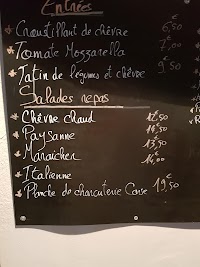 Entrées
Croustillant de chèvre 6,50
Tomate Mozzarella 7,00
Tatin de légumes et chèvre 9,50
Salades repas
Chèvre chaud 12,50
Paysanne 14,50
Maraicher 13,50
Italienne 14,00
Planche de charcuterie Corse 19,50